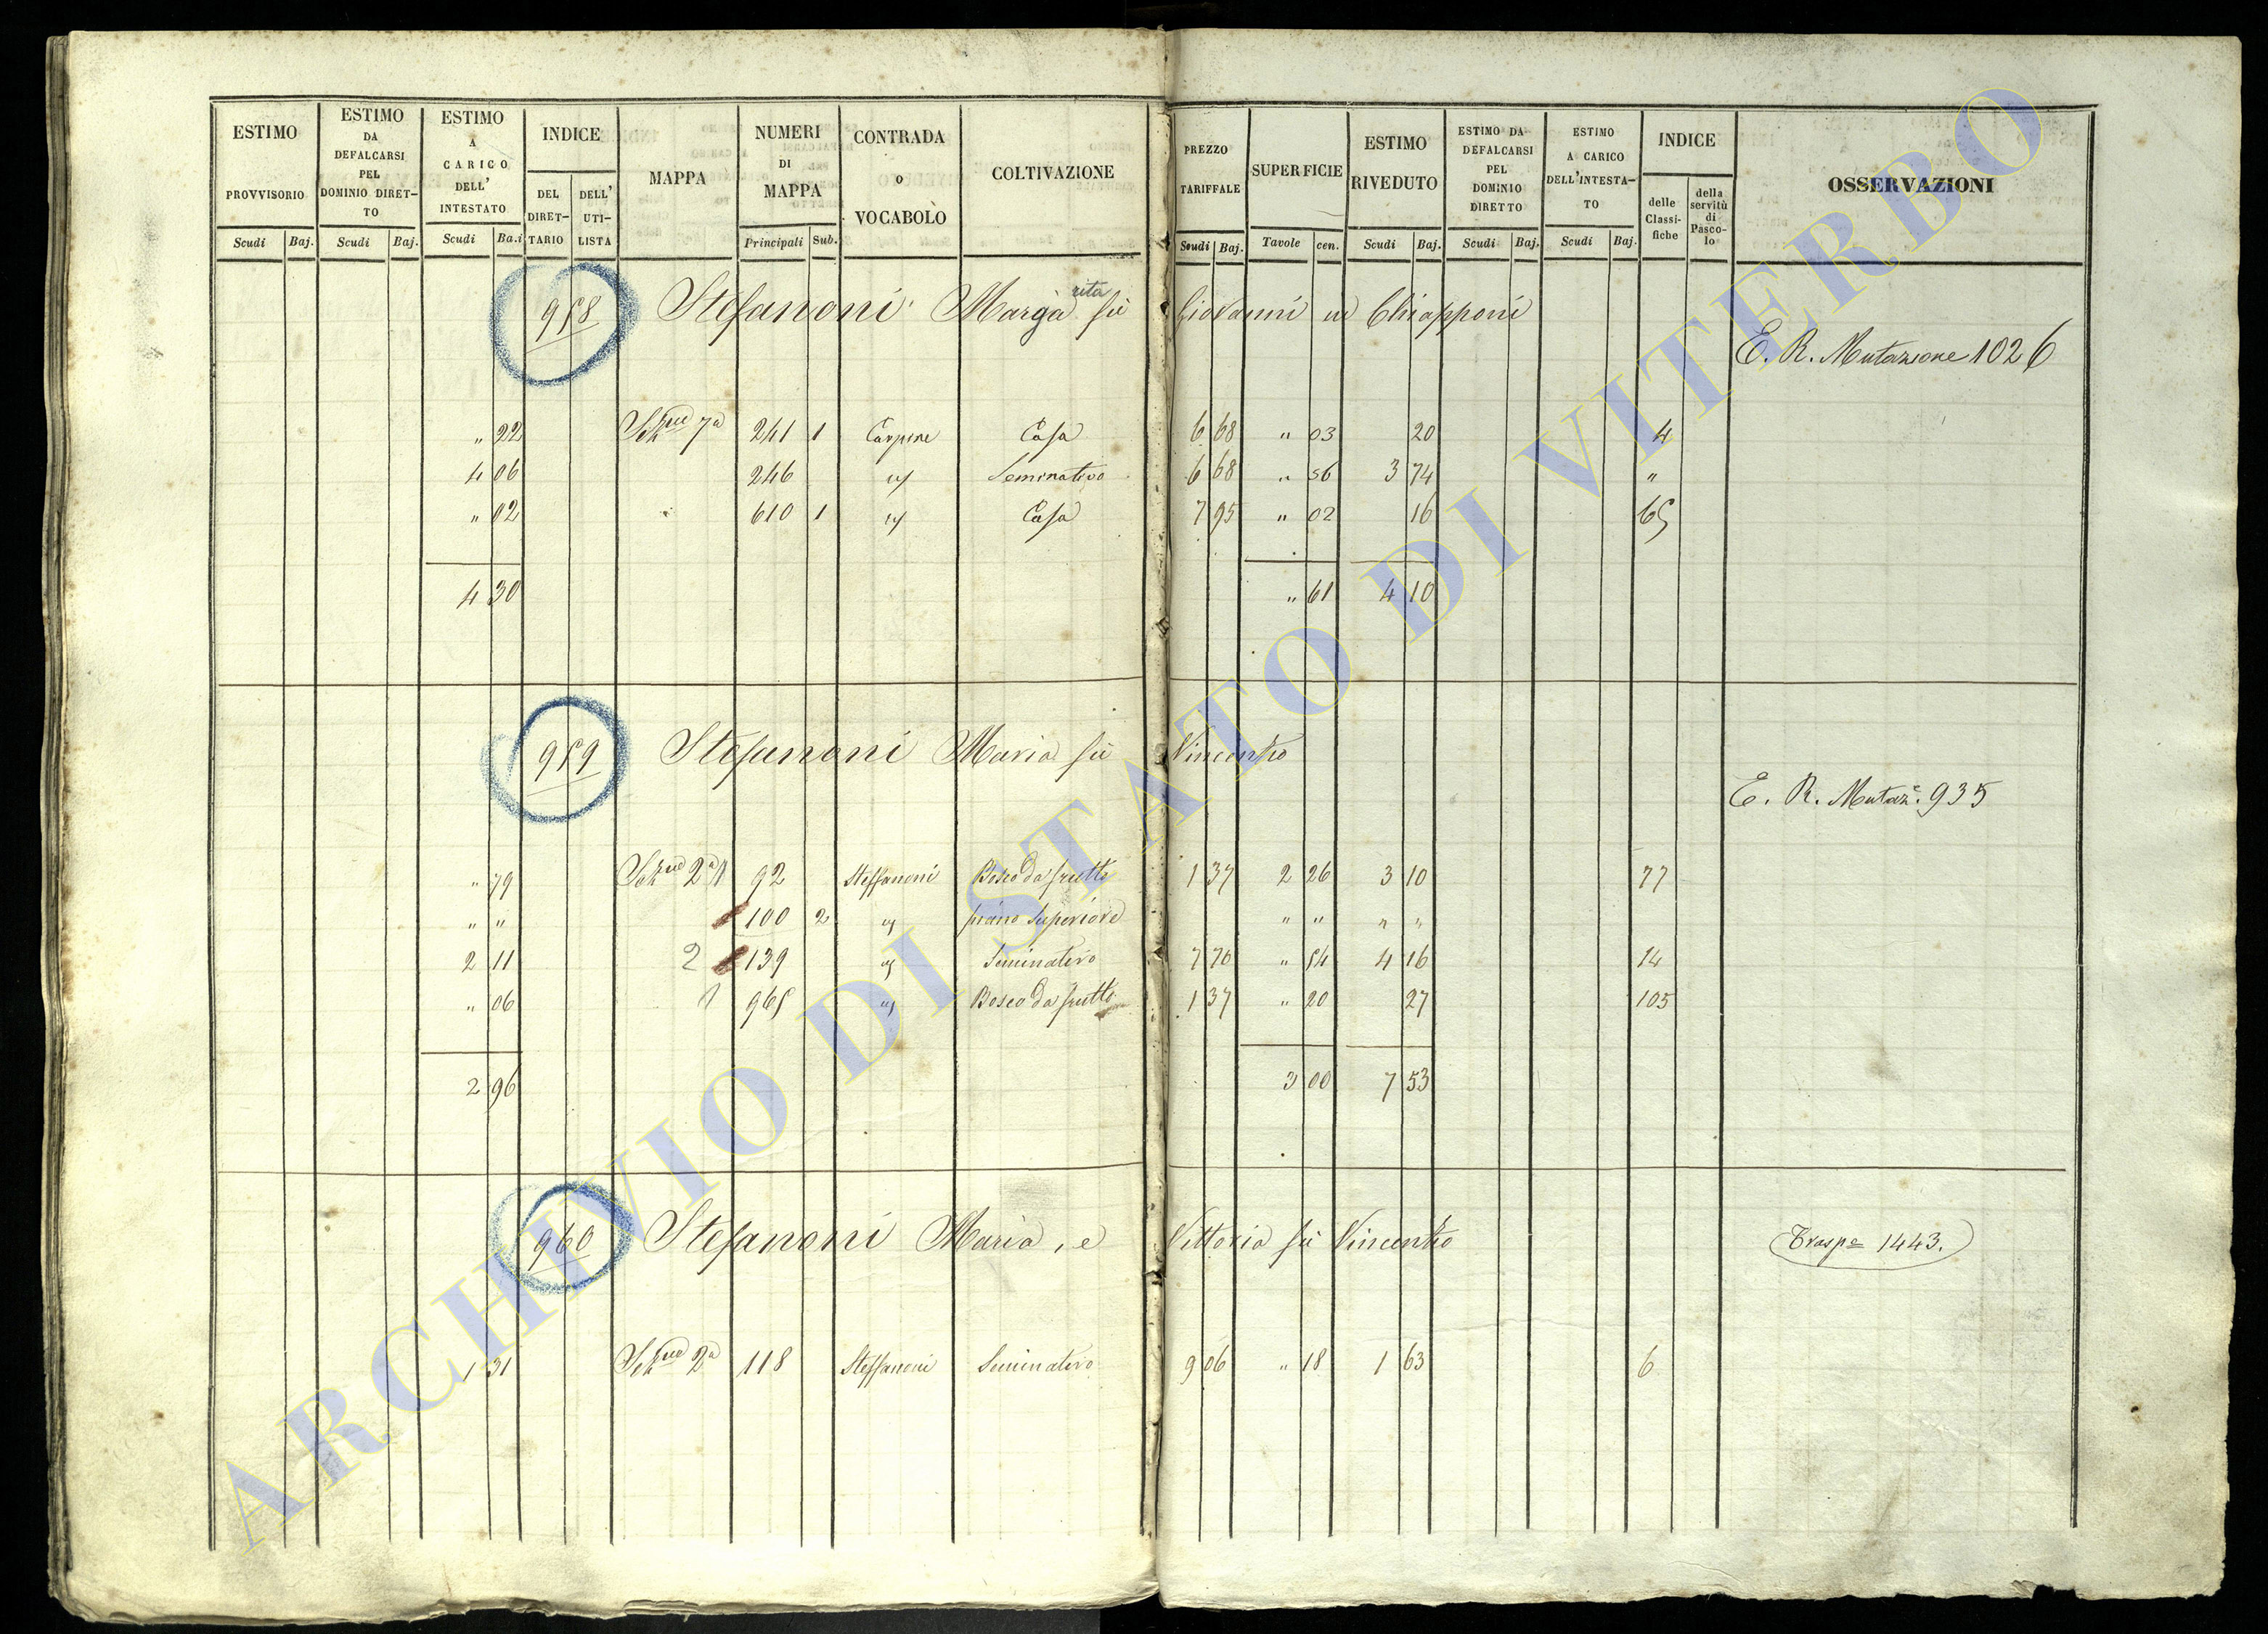 ESTIMO PROVVISORIO Scudi Baj. ESTIMO DA DEFALCARSI PEL DOMINIO DIRET-TO Scudi Baj. ESTIMO A CARICO DELL' INTESTATO Scudi Ba.i INDICE DEL DIRET-TARIO DELL' UTI-LISTA MAPPA NUMERI DI MAPPA Principali Sub. CONTRADA o VOCABOLO COLTIVAZIONE PREZZO TARIFFALE Scudi Baj. SUPERFICIE Tavole cen. ESTIMO RIVEDUTO Scudi Baj. ESTIMO DA DEFALCARSI PEL DOMINIO DIRETTO Scudi Baj. ESTIMO A CARICO DELL'INTESTA-TO Scudi Baj. INDICE delle Classi-fiche della servitù di Pasco-lo OSSERVAZIONI
958 Stefanoni Margarita fù Giovanni in Chiapponi
E. R. Mutazione 1026
" 22 7a 241 1 Carpine Casa 6 68 " 03 20 4
4 06 246 Seminativo 6 68 " 56 3 74 "
" 02 610 1 Casa 7 95 " 02 16 65
4 30 " 61 4 10
959 Stefanoni Maria fù Vincenzo
E. R. Mutaze. 935
" 79 2a 1 92 Steffanoni Bosco da frutto 1 37 2 26 3 10 77
" " 100 2 piano Superiore " " " "
2 11 2 139 Seminativo 7 70 " 54 4 16 14
" 06 1 965 Bosco da frutto 1 37 " 20 27 105
2 96 3 00 7 53
960 Stefanoni Maria, e Vittoria fù Vincenzo
Traspe 1443.
1 31 2a 118 Steffanoni Seminativo 9 06 " 18 1 63 6
ARCHIVIO DI STATO DI VITERBO